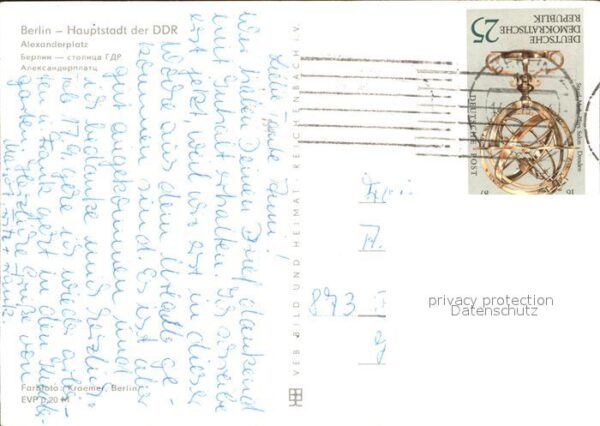 Berlin – Hauptstadt der DDR
Alexanderplatz
Берлин – столица ГДР
Александерплатц
Liebe
wir haben Deinen Brief dankend
mit Inhalt erhalten. Ich schreibe
erst jetzt, weil wir erst in dieser
Woche aus dem Urlaub ge-
kommen sind. Es ist alles
gut angekommen und
ich bedanke mich herzlich.
Ab 17.9. gehe ich wieder arbei-
ten, Frank geht in den Kinder-
garten. Herzliche Grüße von
Frank.
Farbfoto: Kraemer, Berlin
EVP 0,20 M
VEB BILD UND HEIMAT REICHENBACH i. V.
25
DEUTSCHE
DEMOKRATISCHE
REPUBLIK
DEUTSCHE POST
Dresden
BERLIN
873
privacy protection
Datenschutz